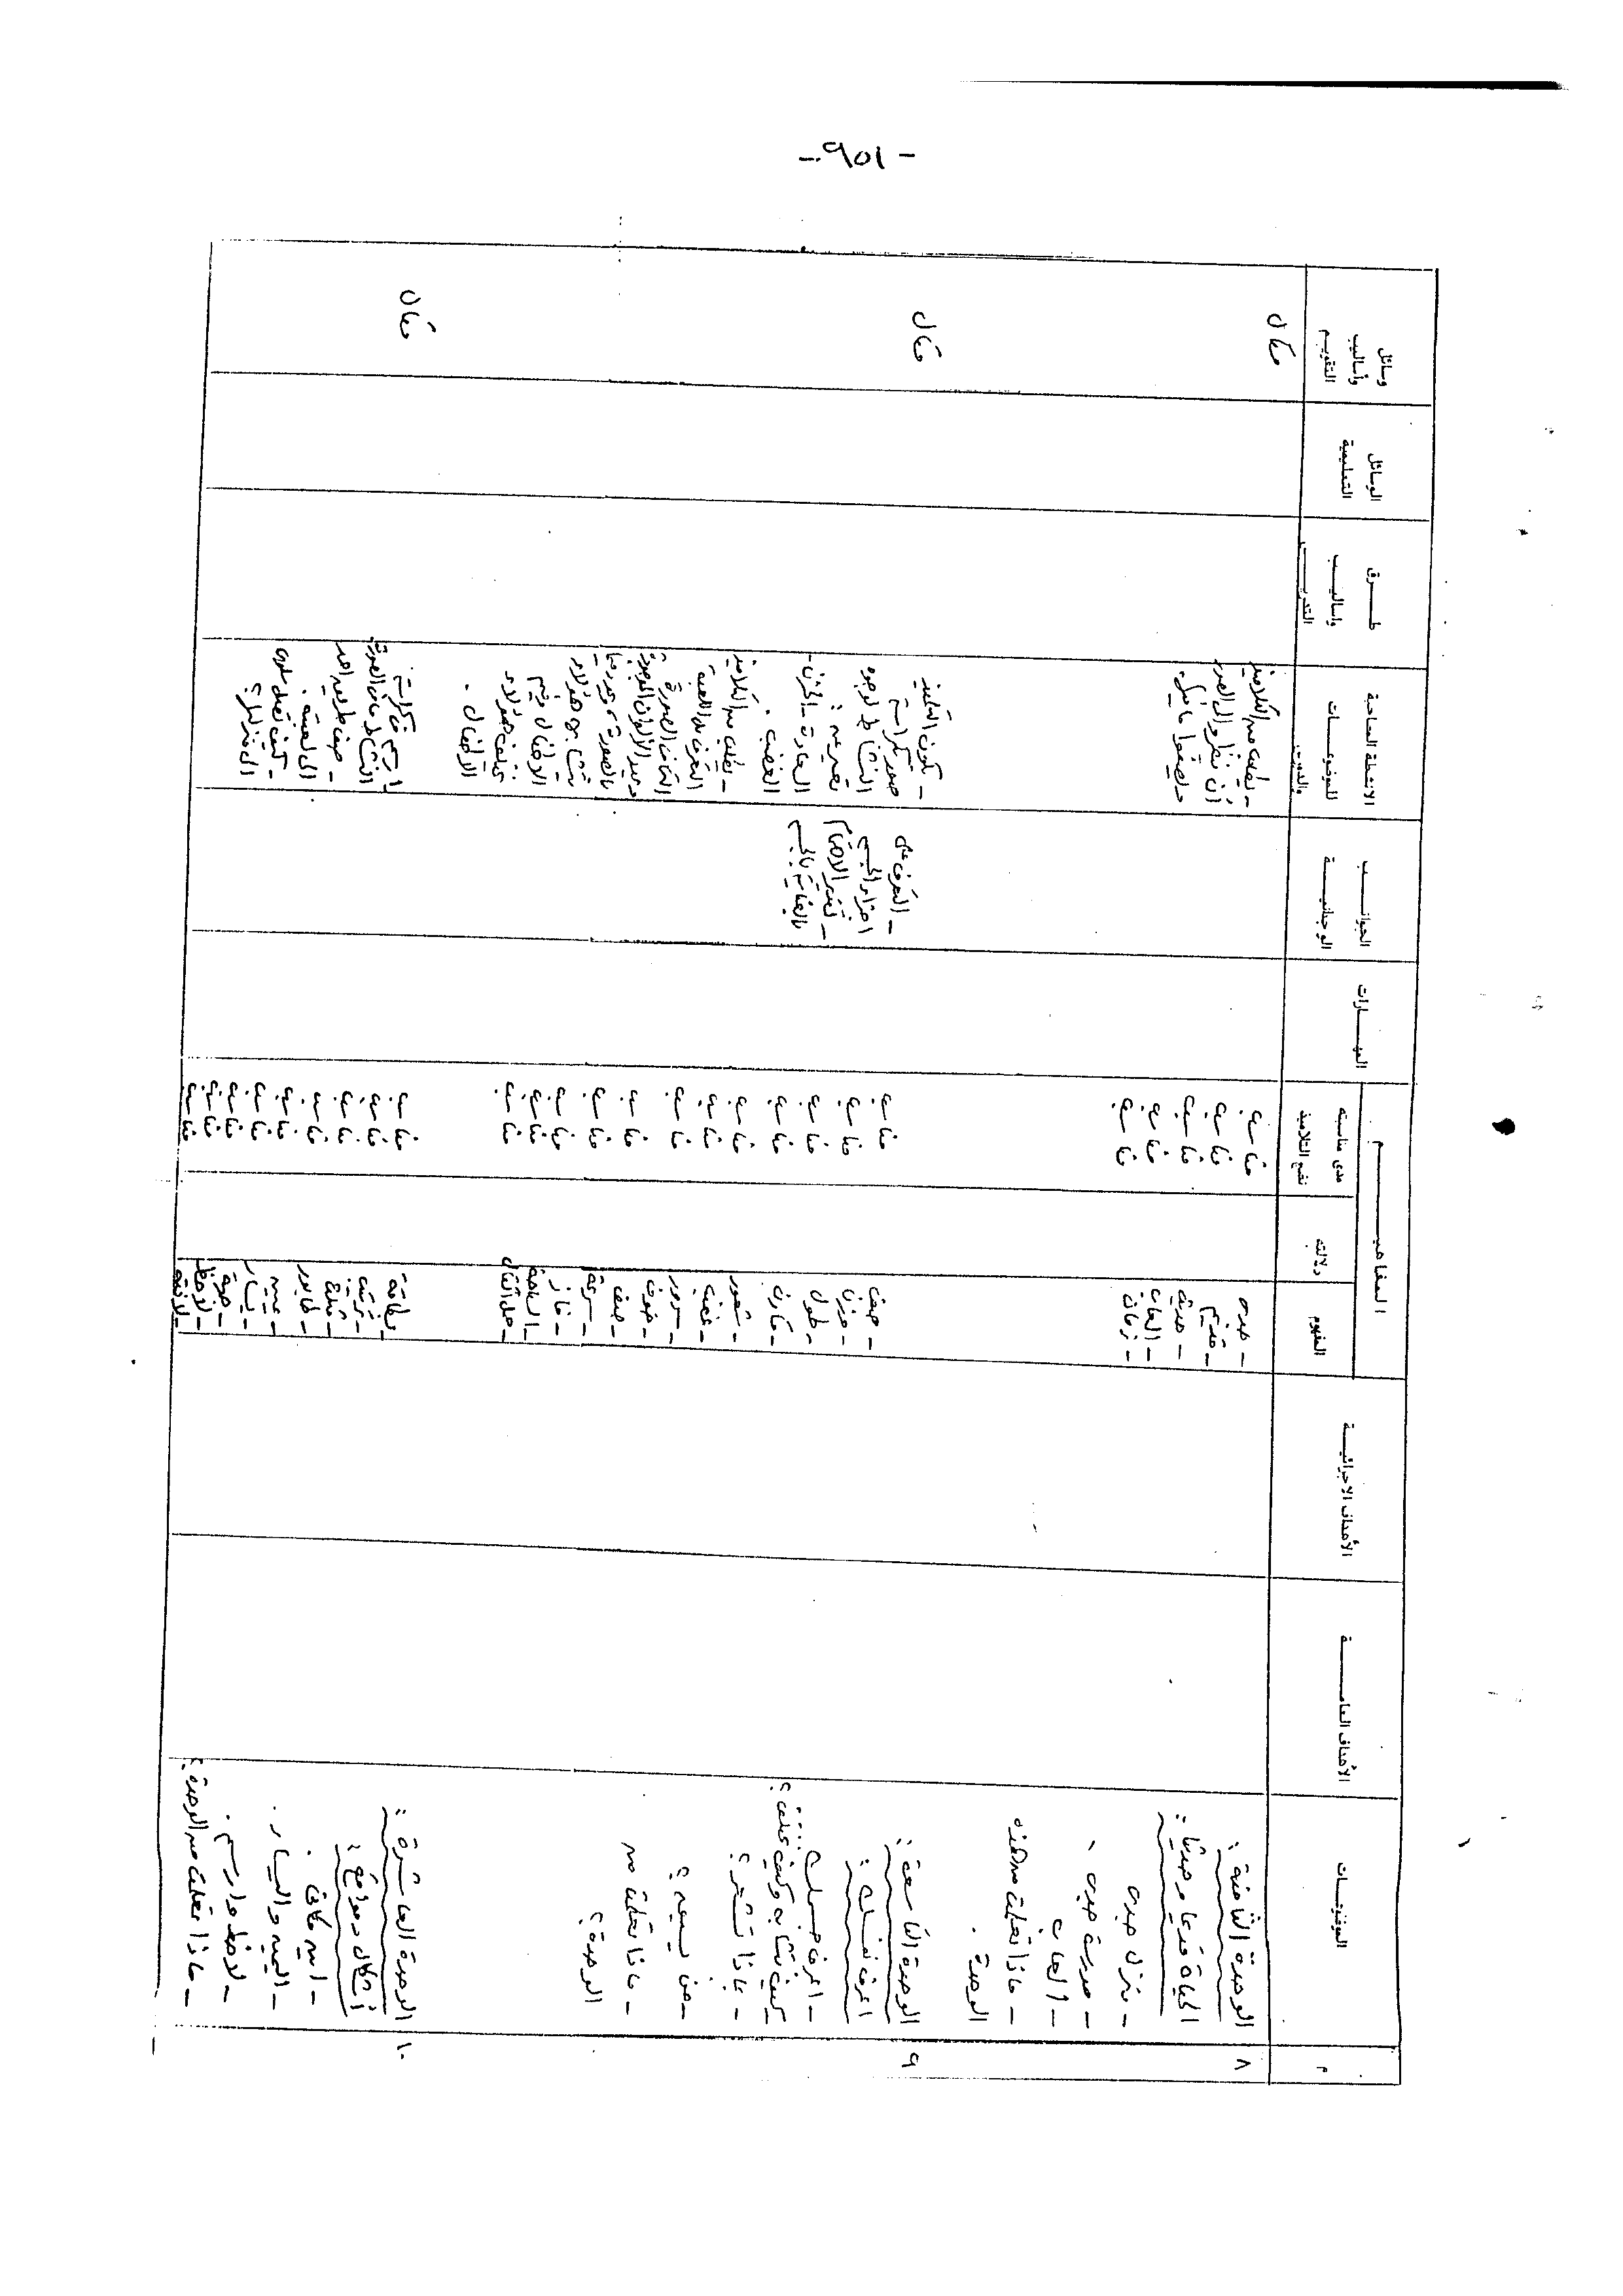 - ٩٥١ -
م
الموضوعات
الأهداف العامة
الأهداف الاجرائية
المفاهيم
المفهوم
دلالته
مدى مناسبته
نضج التلاميذ
المهارات
الجوانب
الوجدانية
الأنشطة المصاحبة
للموضوعات
والدروس
طرق
وأساليب
التدريس
الوسائل
التعليمية
وسائل
وأساليب
التقويم
٨
الوحدة الثامنة :
الحياة قديما وحديثا :
- منزل جدى
- مدرسة جدى .
- ألعاب
- ماذا تعلمت من هذه
الوحدة .
- جده
- قديم
- حديثة
- العاب
- زمان
مناسب
مناسب
مناسب
مناسب
مناسب
- يطلب من التلاميذ
أن ينظروا إلى الصور
مقال
٩
الوحدة التاسعة :
اعرف نفسك :
- اعرف جسمك
- كيف نتشابه وكيف نختلف ؟
- بماذا تشعر ؟
- من نسيم ؟
- ماذا تعلمت من
الوحدة ؟
- جسم
- حزن
- طول
- مقارن
- شعور
- غضب
- سرور
- خوف
- صيف
- سرعة
- فاز
- السباحة
مناسب
مناسب
مناسب
مناسب
مناسب
مناسب
مناسب
مناسب
مناسب
مناسب
مناسب
مناسب
مناسب
- التعرف على
اجزاء الجسم
- تقدير الاهتمام
بالعناية بالجسم
- يكون التلميذ
صور كراسة
النشاط لوجوه
تعبر عن :
السعادة - الحزن -
الغضب .
- يطلب من التلاميذ
التعرف على اللعبة
التى فى الصورة
يتشابه هؤلاء
الأطفال وفيم
يختلف هؤلاء
الأطفال .
مقال
١٠
الوحدة العاشرة :
أشكال ومواقع :
- اين مكانى .
- اليمين واليسار .
- لاحظ وارسم .
- ماذا تعلمت من الوحدة ؟
بطاقة
- ترتيب
- طابور
- يمين
- يسار
- لاحظ
- لافتة
مناسب
مناسب
مناسب
مناسب
مناسب
مناسب
مناسب
مناسب
مناسب
ارسم فى كراسة
النشاط مكان الصورة
- صف طريق احمد
الى لعبته .
- كيف تصل سلوى
الى منزلها ؟
مقال